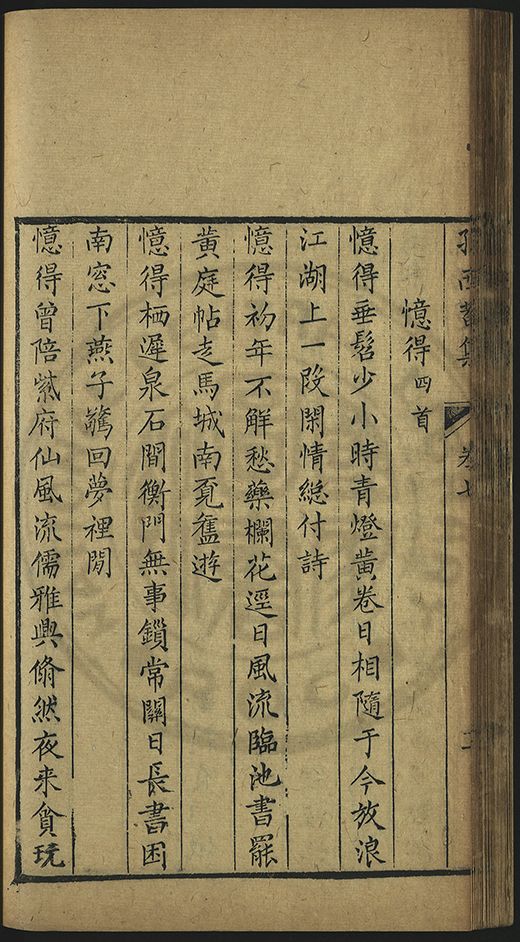 卷七
憶得四首
憶得垂髫少小時青燈黃卷日相隨于今放浪
江湖上一段閑情總付詩
憶得初年不解愁藥欄花逕日風流臨池書罷
黃庭帖走馬城南覓舊遊
憶得栖遲泉石間衡門無事鎖常關日長書困
南窓下燕子驚回夢裡閒
憶得曾陪紫府仙風流儒雅興翛然夜来貪玩